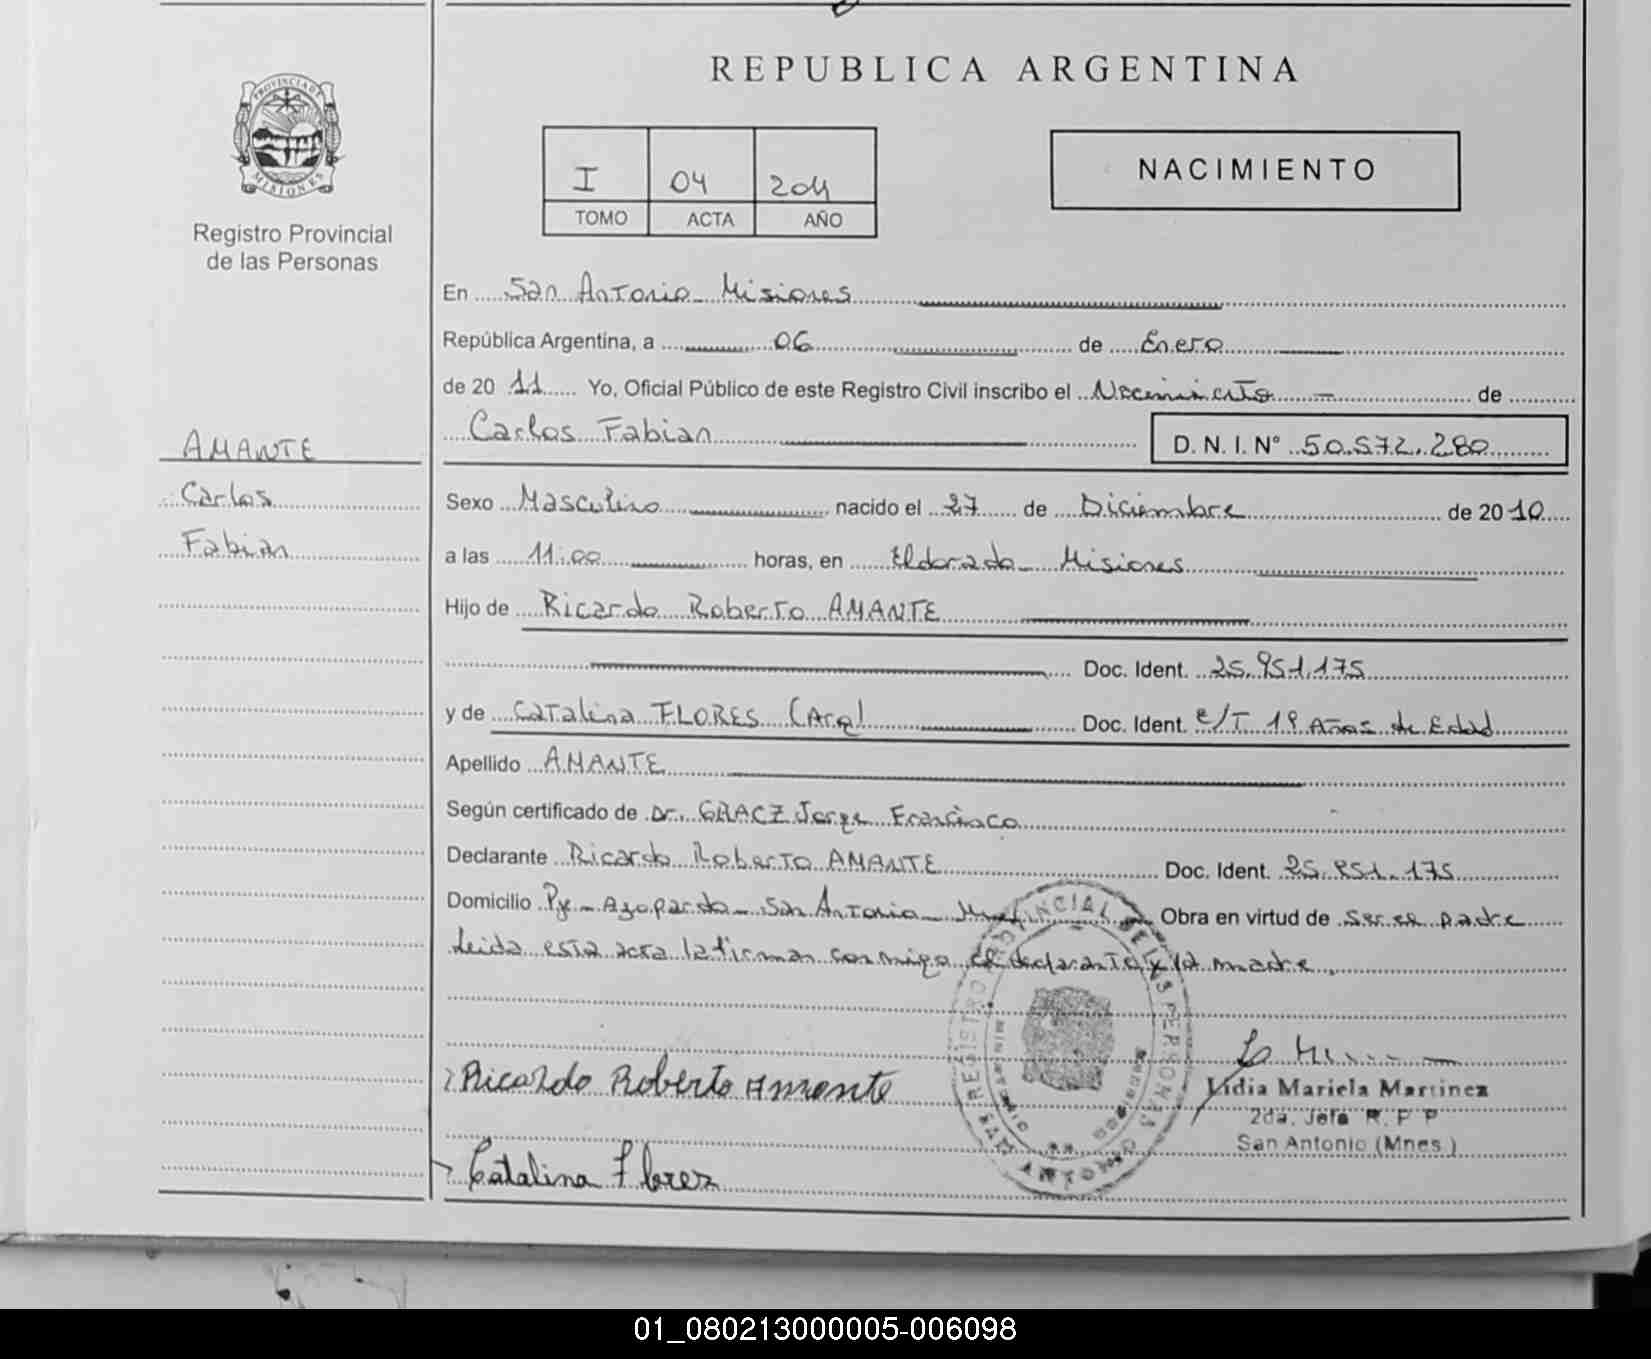 REPUBLICA ARGENTINA
PROVINCIA DE MISIONES
Registro Provincial
de las Personas
I 04 2011
TOMO ACTA AÑO
NACIMIENTO
En San Antonio Misiones
República Argentina, a 06 de Enero
de 20 11 Yo, Oficial Público de este Registro Civil inscribo el Nacimiento de
Carlos Fabian D. N. I. N° 50.572.280
AMANTE
Carlos
Fabian
Sexo Masculino nacido el 27 de Diciembre de 2010
a las 11:00 horas, en Eldorado Misiones
Hijo de Ricardo Roberto AMANTE
Doc. Ident. 25.851.175
y de Catalina FLORES (Arg) Doc. Ident. Años de Edad
Apellido AMANTE
Según certificado de Dr. Jorge Francisco
Declarante Ricardo Roberto AMANTE Doc. Ident. 25.851.175
Domicilio Pje - Azopardo - San Antonio Obra en virtud de ser el padre
Leida esta acta la firman conmigo el declarante y la madre.
Ricardo Roberto Amante
Catalina Florez
Lidia Mariela Martinez
2da. Jefa R. P P
San Antonio (Mnes.)
01_080213000005-006098